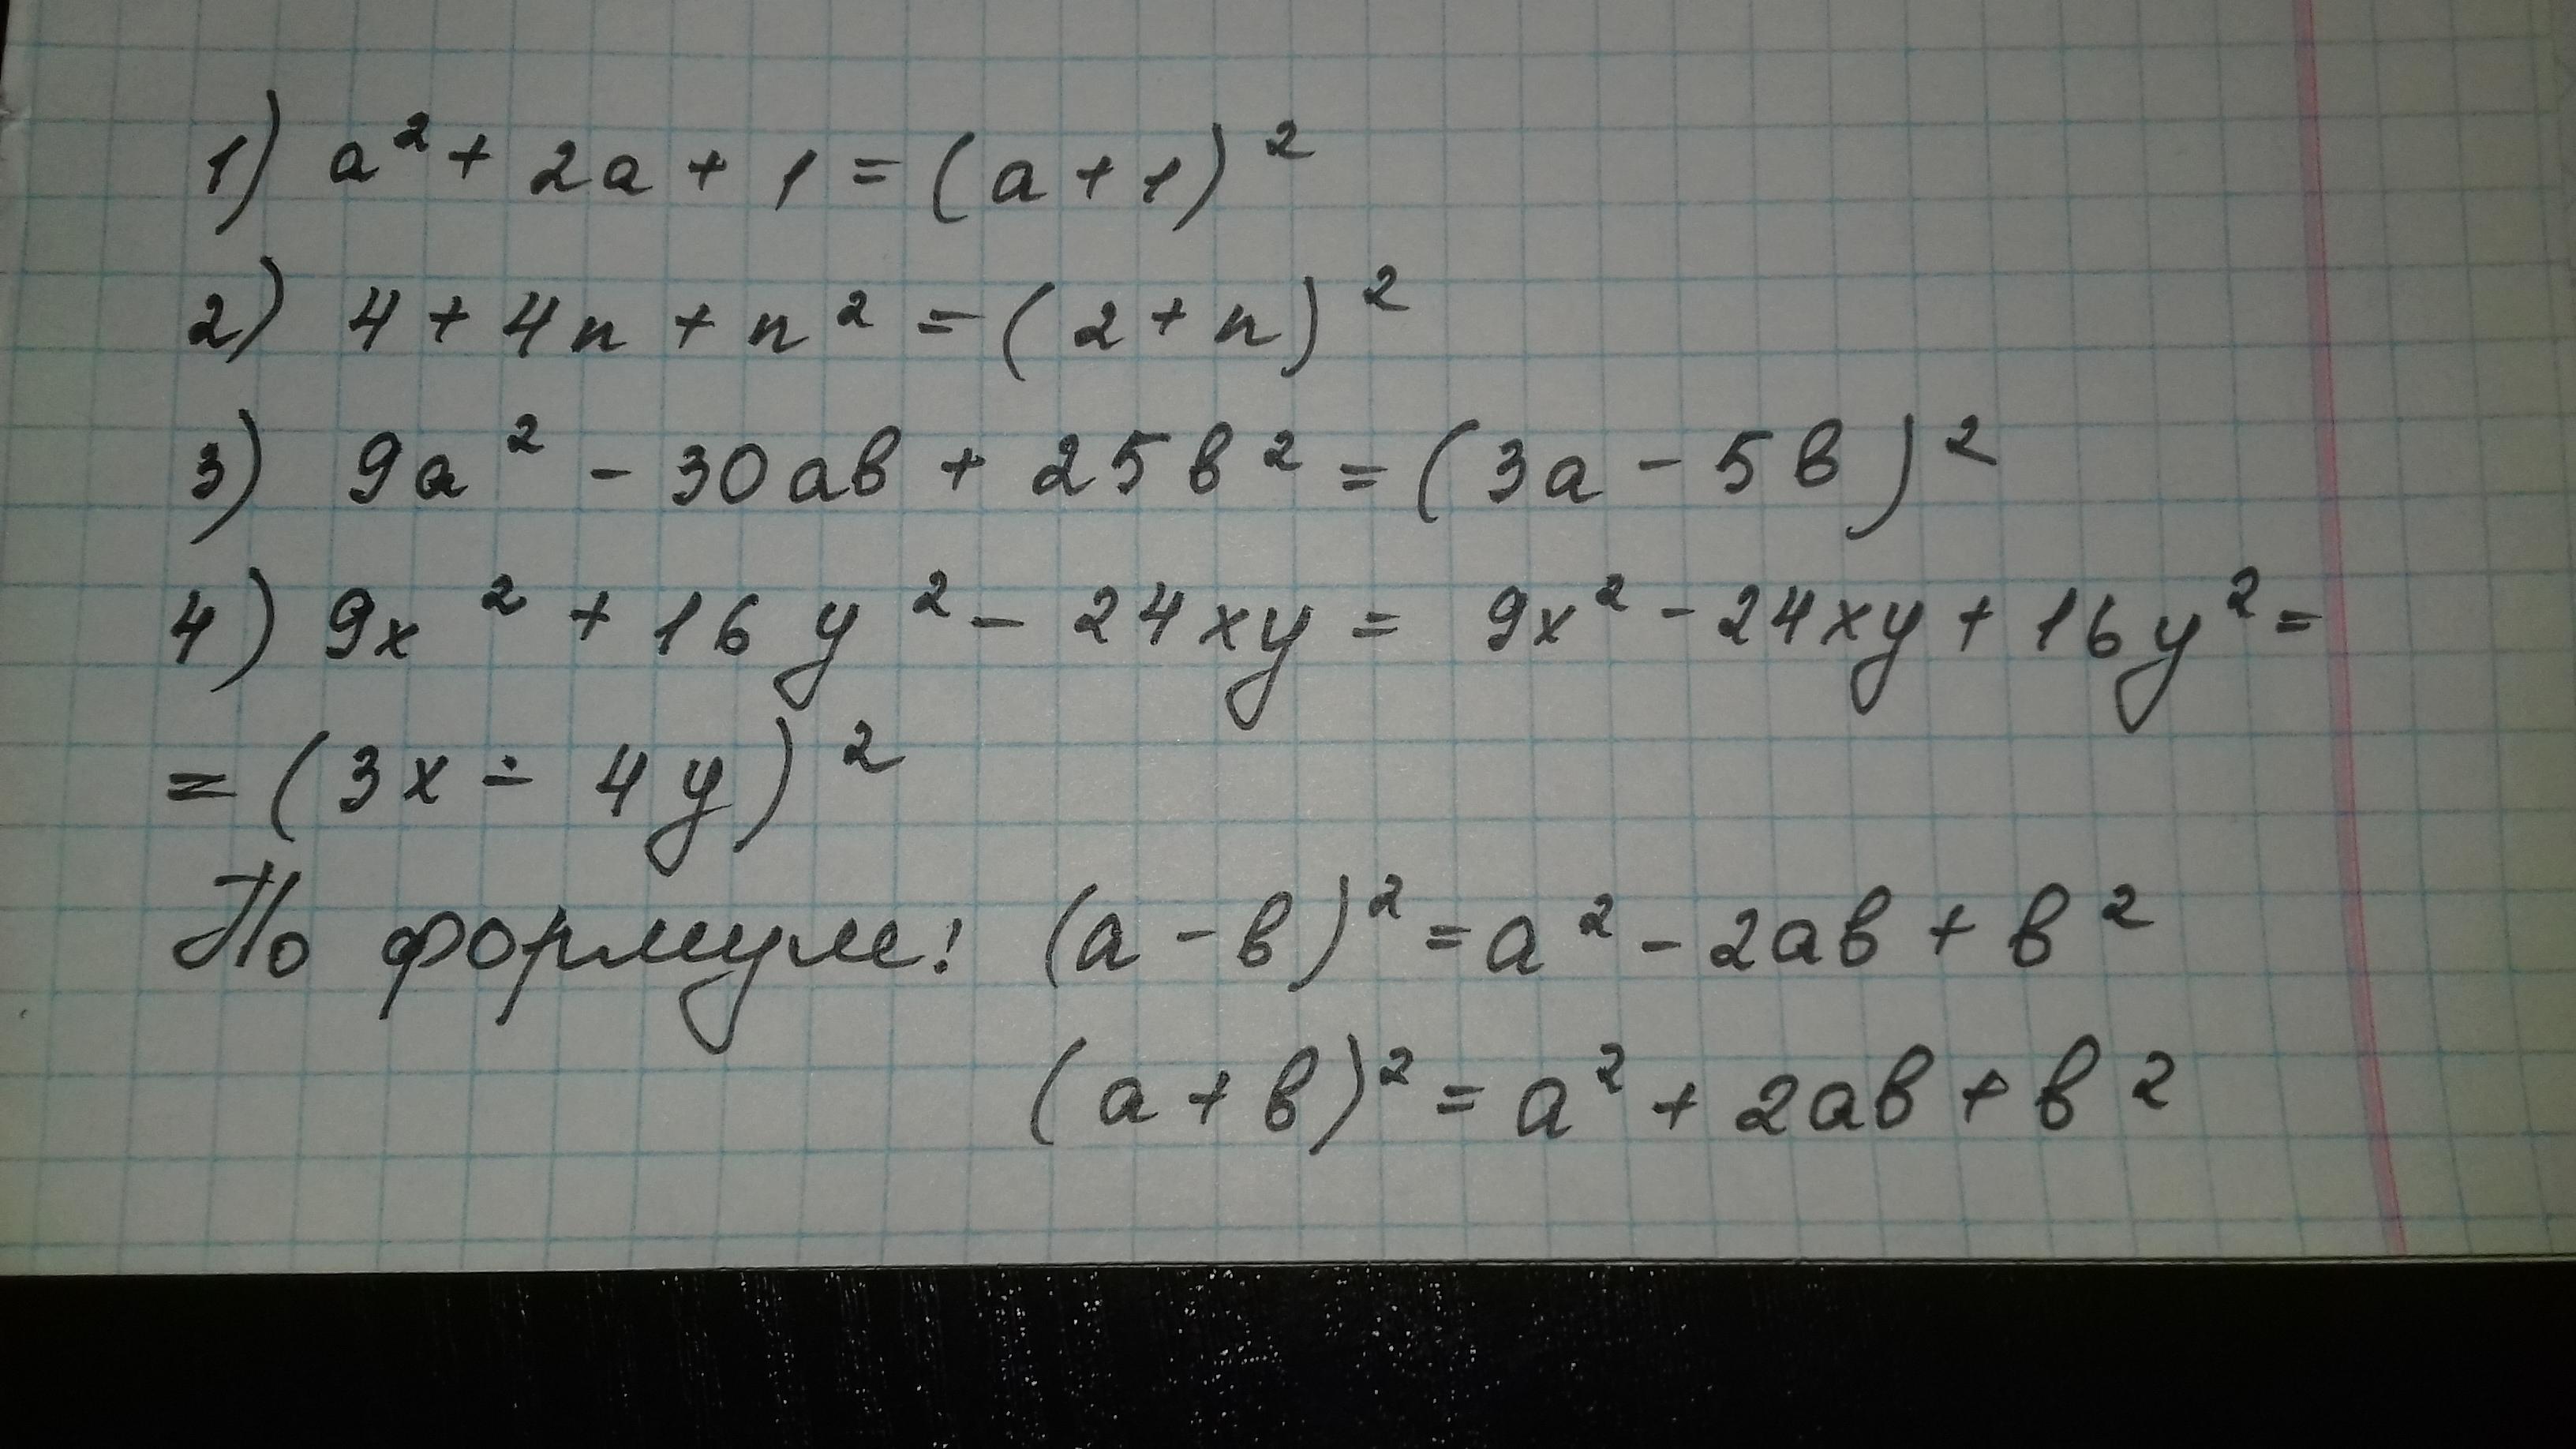 1) a² + 2a + 1 = (a + 1)²
2) 4 + 4n + n² = (2 + n)²
3) 9a² - 30ab + 25b² = (3a - 5b)²
4) 9x² + 16y² - 24xy = 9x² - 24xy + 16y² =
= (3x - 4y)²
По формуле: (a - b)² = a² - 2ab + b²
(a + b)² = a² + 2ab + b²